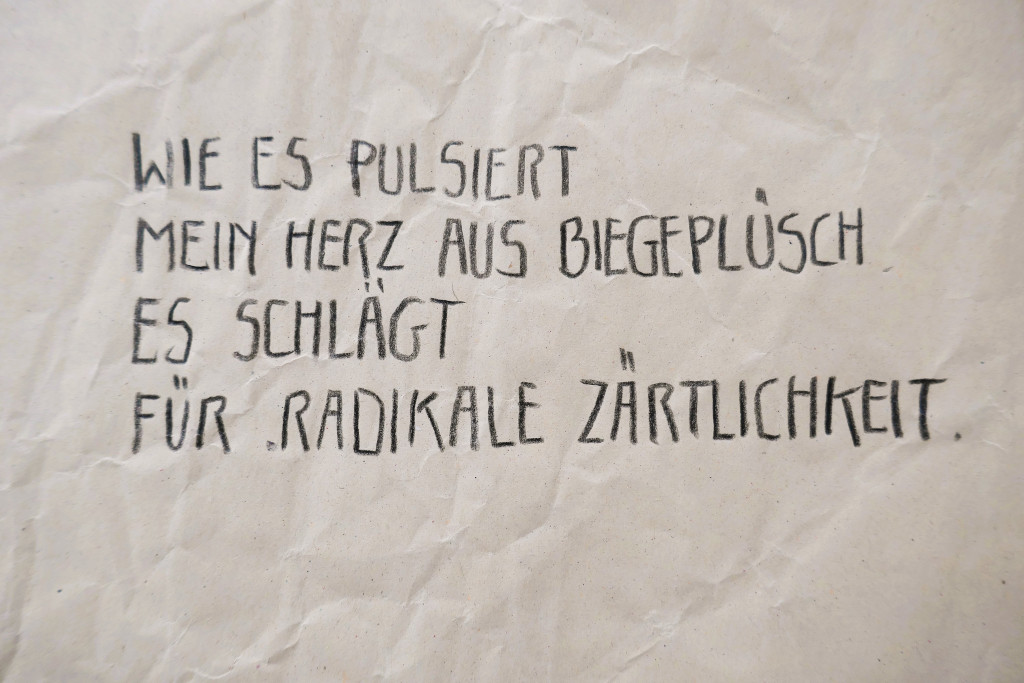 WIE ES PULSIERT
MEIN HERZ AUS BIEGEPLÜSCH
ES SCHLÄGT
FÜR RADIKALE ZÄRTLICHKEIT.